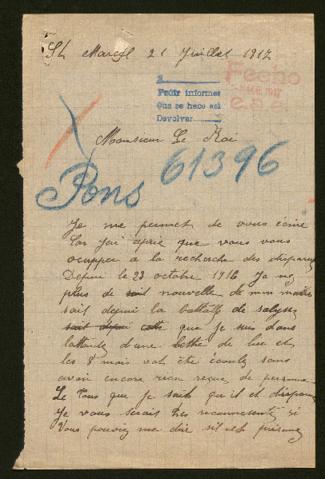 St Marcel 21 Juillet 1917
Fecho
Pedir informes
Que se hace así
Devolver
Monsieur Le Roi
61396
Pons
Je me permet de vous écrire
car jai apris que vous vous
ocupper a la recherche des disparus
Depuis le 23 octobre 1916 Je nez
plus de nouvelle de mon mari
soit depuis la battalle de
que je suis dans
lattente d'une lettre de lui et
les 8 mois
avoir encore rien recue de personne
Le Cons que je sait qu'il et disparu
Je vous serais tres reconnesente si
Vous pouviez me dire sil est prisonez